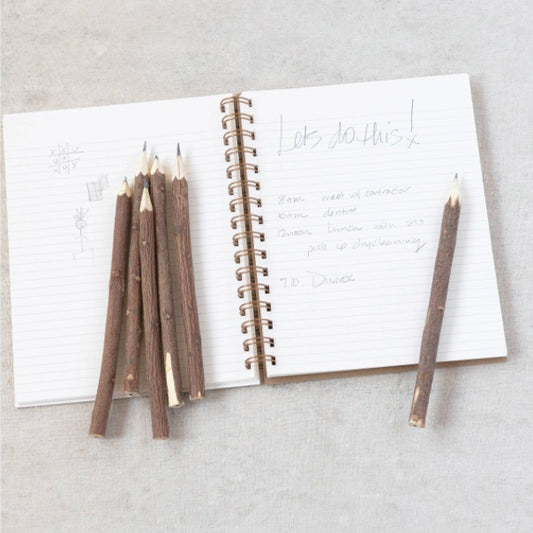 Lets do this!
8am meet w/ contractor
10am dentist
12noon lunch with
pick up drycleaning
7.10 Dinner